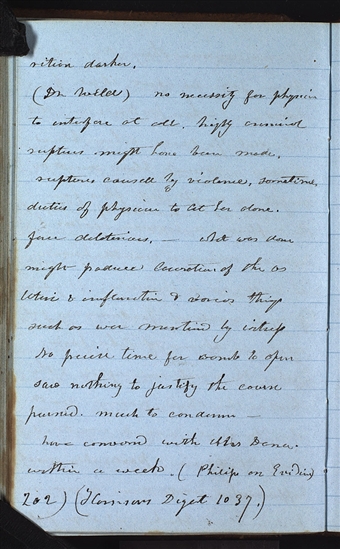 rition darker.
(Dr Weld) no necessity for physician
to interfere at all. highly criminal
ruptures might have been made.
ruptures caused by violence, sometimes
duties of physician to let her alone.
force deleterious, — what was done
might produce laceration of the os
Uteri & & various things
such as were mentioned by
No precise time for womb to open
saw nothing to justify the course
pursued. much to condemn —
have conversed with Mrs Dana.
within a week. (Philips on Evidence
202) (Harrisons Digest 1037.)